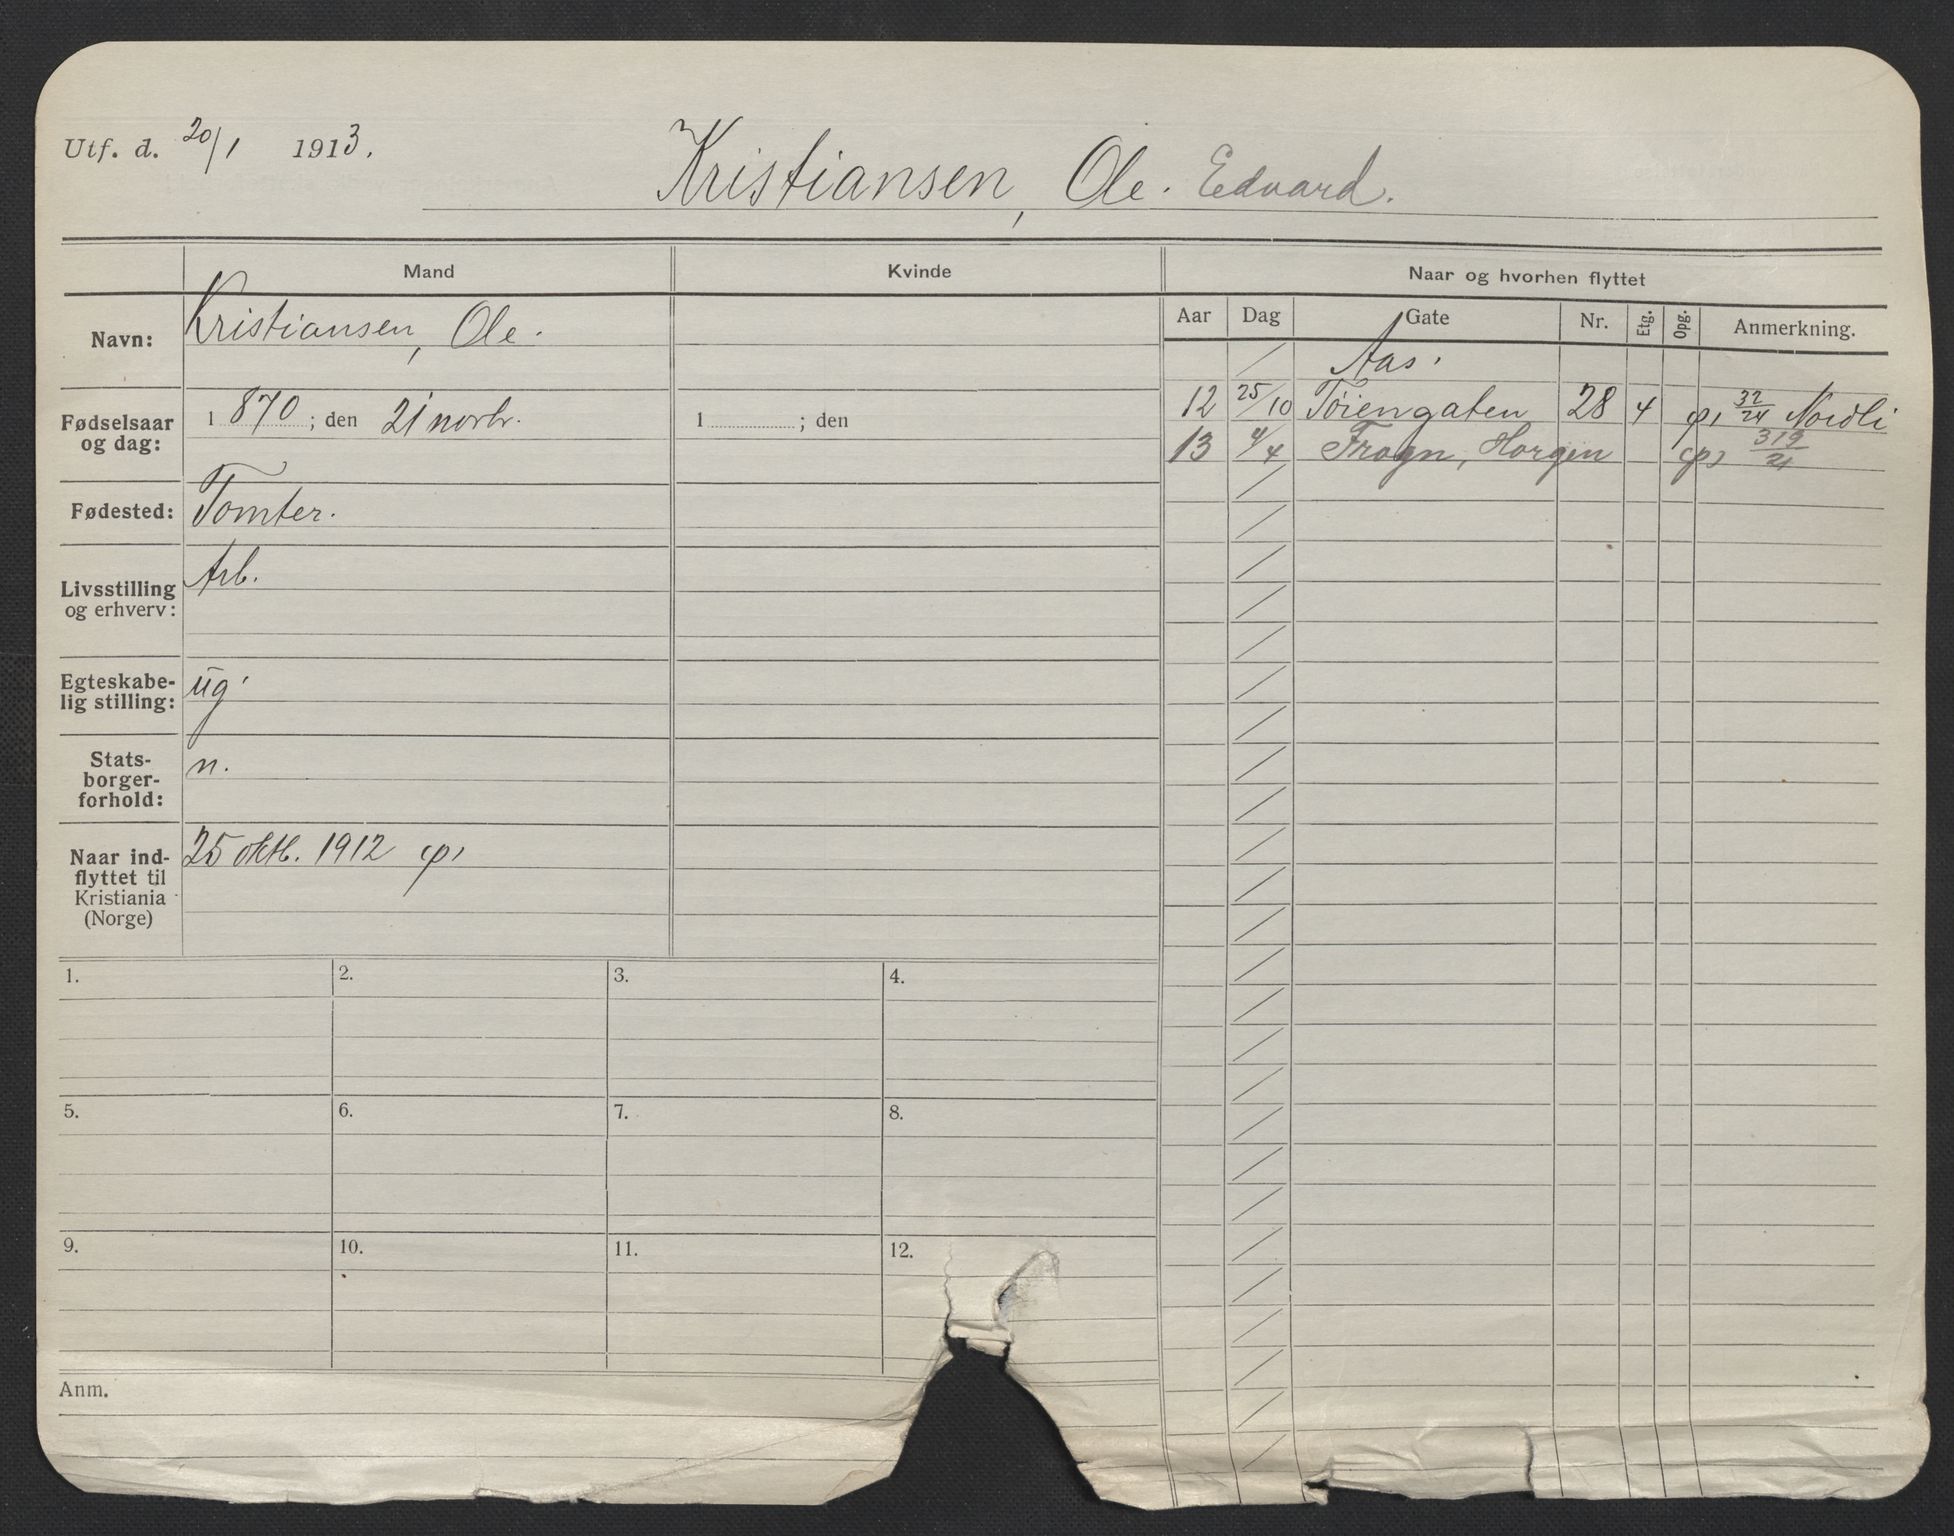 Utf. d. 20/1 1913.
Kristiansen, Ole. Edvard.
Mand
Kvinde
Naar og hvorhen flyttet
Navn:
Kristiansen, Ole.
Aar Dag Gate Nr. Etg. Opg. Anmerkning.
Aas.
12 25/10 Tøiengaten 28 4 32/24 Nordli
13 4/4 Frogn, Horgen 319/21
Fødselsaar
og dag:
1870 ; den 21 novbr.
1 ; den
Fødested:
Tomter.
Livsstilling
og erhverv:
Arb.
Egteskabe-
lig stilling:
ug.
Stats-
borger-
forhold:
n.
Naar ind-
flyttet til
Kristiania
(Norge)
25 oktb. 1912
1. 2. 3. 4.
5. 6. 7. 8.
9. 10. 11. 12.
Anm.